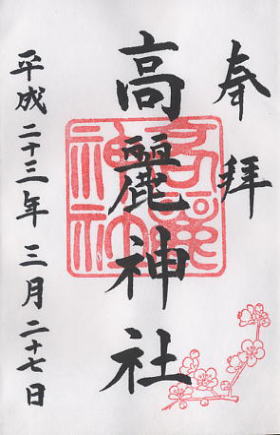 奉拝
高麗神社
高麗神社
平成二十三年三月二十七日